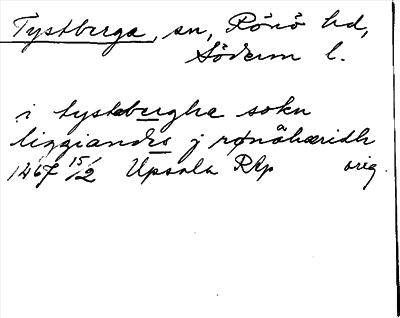 Tystberga, sn, Rönö hd,
Söderm l.
i tystæberghe sokn
liggiandis j rønöhæridh
1467 15/2 Upsala RAp orig.